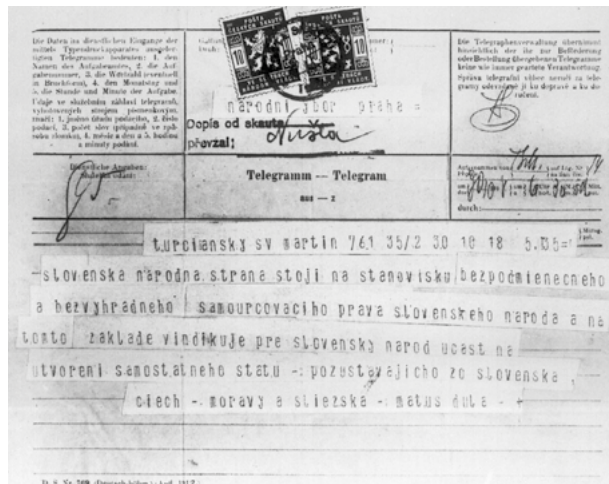 Die Daten im dienstlichen Eingange der
mittels Typendruckapparates ausgefer-
tigten Telegramme bedeuten: 1. den
Namen des Aufgabeamtes, 2. die Auf-
gabenummer, 3. die Wortzahl (eventuell
in Bruchform), 4. den Monatstag und
5. die Stunde und Minute der Aufgabe.
Údaje ve služebním záhlaví telegramů,
vyhotovených strojem písmenkovým,
značí: 1. jméno úřadu podacího, 2. číslo
podací, 3. počet slov
4. měsíc a den a 5. hodinu
a minuty podání.
POŠTA
ČESKÝCH SKAUTŮ
POŠTA
SKAUTŮ
10
10
národní sbor praha =
Dopis od skauta
převzal:
Die Telegraphenverwaltung übernimmt
hinsichtlich der ihr zur Beförderung
oder Bestellung übergebenen Telegramme
keine wie immer geartete Verantwortung.
Správa telegrafní vůbec neručí za tele-
gramy odevzdané jí ku dopravě a ku do-
ručení.
Dienstliche Angaben:
95
Telegramm — Telegram
aus — z
durch:
turciansky sv martin 761 35/2 30 10 18 5.05=
-slovenska narodna strana stoji na stanovisku bezpodmienecneho
a bezvyhradneho samourcovaciho prava slovenskeho naroda a na
tomto zaklade vindikuje pre slovensky narod ucast na
utvoreni samostatneho statu - pozustavajicho zo slovenska
ciech - moravy a sliezska - matus dula - +